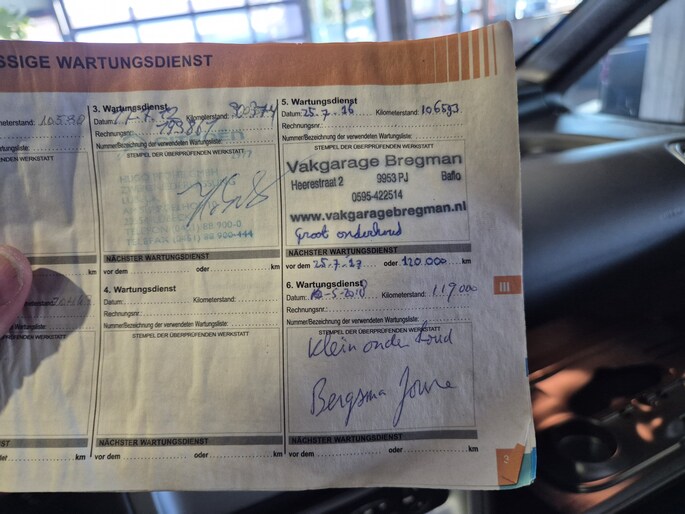 SSIGE WARTUNGSDIENST
terstand: 10580
Rechnungsnr.:
wendeten Wartungsliste:
FENDEN WERKSTATT
km
FENDEN WERKSTATT
ST
km
3. Wartungsdienst
Datum: Kilometerstand:
Rechnungsnr.:
Nummer/Bezeichnung der verwendeten Wartungsliste:
STEMPEL DER ÜBERPRÜFENDEN WERKSTATT
NÄCHSTER WARTUNGSDIENST
vor dem oder km
4. Wartungsdienst
Datum: Kilometerstand:
Rechnungsnr.:
Nummer/Bezeichnung der verwendeten Wartungsliste:
STEMPEL DER ÜBERPRÜFENDEN WERKSTATT
NÄCHSTER WARTUNGSDIENST
vor dem oder km
5. Wartungsdienst
Datum: 25.7.16 Kilometerstand: 106593
Rechnungsnr.:
Nummer/Bezeichnung der verwendeten Wartungsliste:
STEMPEL DER ÜBERPRÜFENDEN WERKSTATT
Vakgarage Bregman
Heerestraat 2 9953 PJ Baflo
0595-422514
www.vakgaragebregman.nl
Groot onderhoud
NÄCHSTER WARTUNGSDIENST
vor dem 25.7.17 oder 120.000 km
6. Wartungsdienst
Datum: Kilometerstand: 119000
Rechnungsnr.:
Nummer/Bezeichnung der verwendeten Wartungsliste:
STEMPEL DER ÜBERPRÜFENDEN WERKSTATT
Klein onderhoud
Bergsma Joure
NÄCHSTER WARTUNGSDIENST
vor dem oder km
III
3